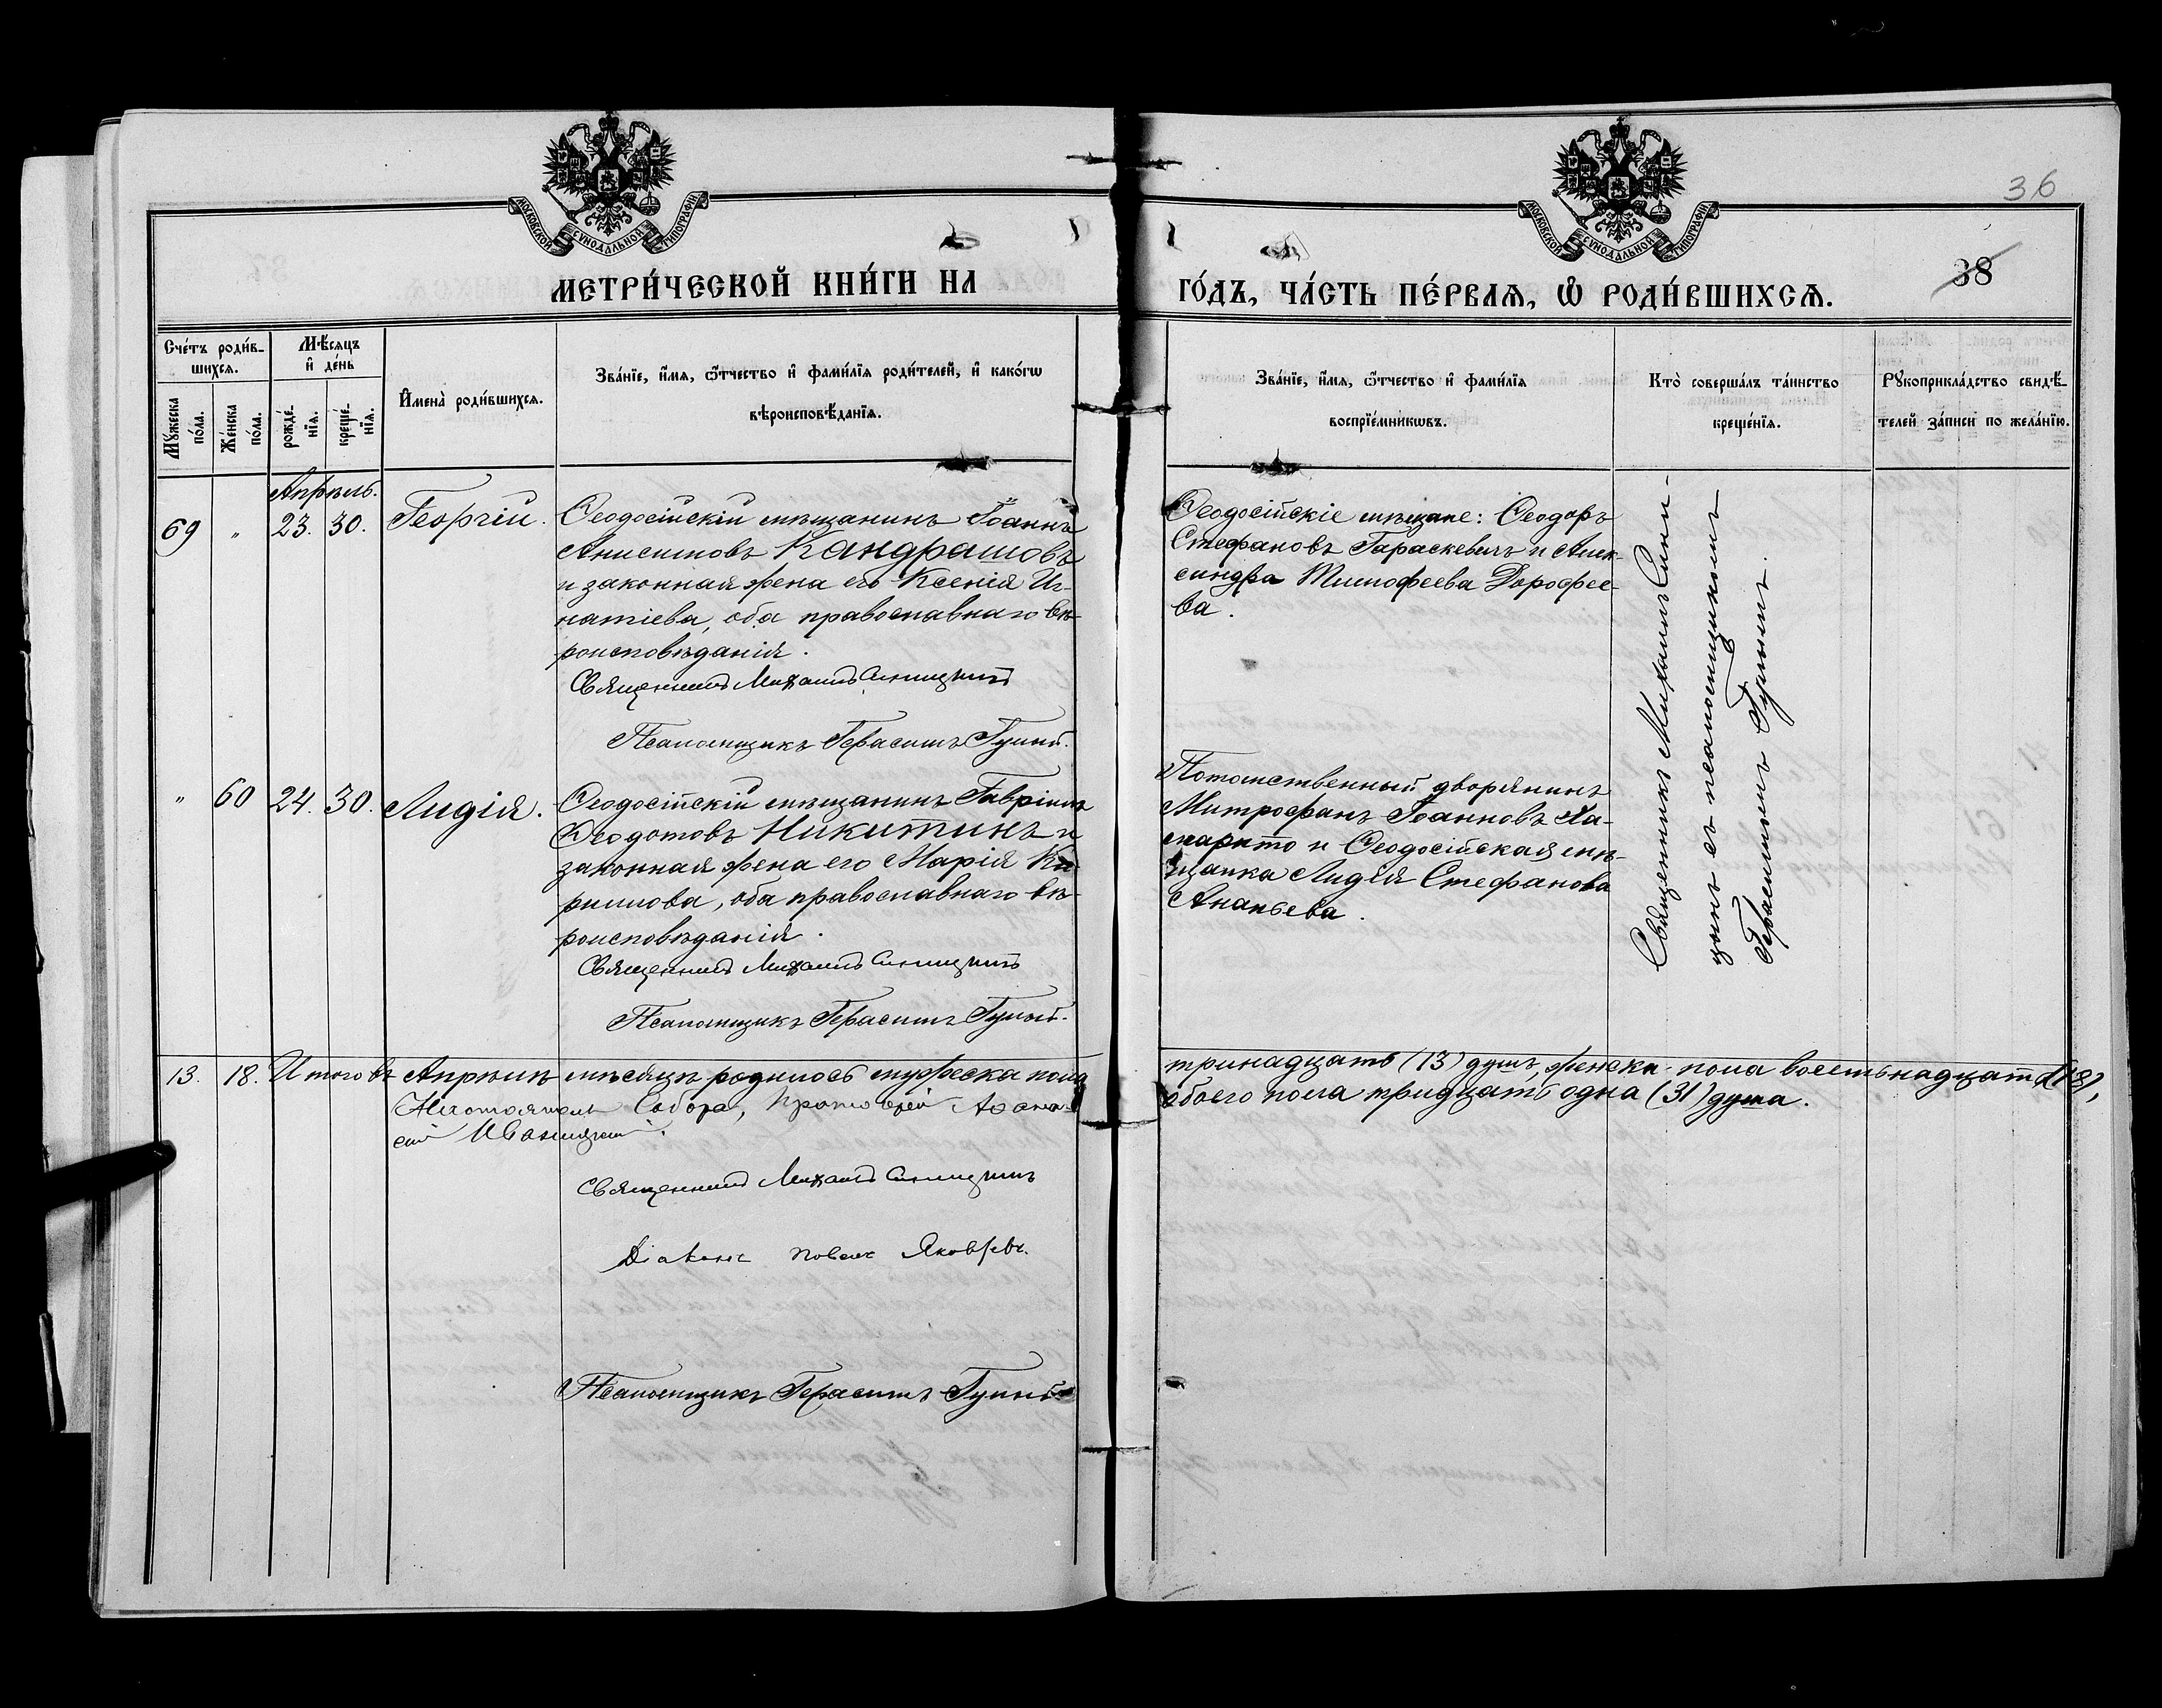 36
38
МОСКОВСКОЙ СУНОДАЛЬНОЙ ТИПОГРАФІИ
МОСКОВСКОЙ СУНОДАЛЬНОЙ ТИПОГРАФІИ
МЕТРИ́ЧЕСКОЙ КНИ́ГИ НА
ГО́ДЪ, ЧА́СТЬ ПЕ́РВАЯ, Ѡ҆ РОДИ́ВШИХСЯ.
Сче́тъ роди́в-
шихся.
Мѣ́сяцъ
и҆ де́нь
Му́жеска
по́ла.
Же́нска
по́ла.
рожде́-
нїя.
креще́-
нїя.
И҆мена̀ роди́вшихся.
Зва́нїе, и҆́мя, ѻ҆́тчество и҆ фами́лїя роди́телей, и҆ како́гѡ
вѣроисповѣ́данїя.
Зва́нїе, и҆́мя, ѻ҆́тчество и҆ фами́лїя
воспрїе́мникѡвъ.
Кто̀ соверша́лъ та́инство
креще́нїя.
Рукоприкла́дство свидѣ́-
телей за́писи по жела́нїю.
Апрѣль.
69 " 23. 30. Георгій.
Ѳеодосійскій мѣщанинъ Іоаннъ
Анисимовъ Кандрашовъ
и законная жена его Ксенія Иг-
натіева, оба православнаго вѣ-
роисповѣданія.
Священникъ Михаилъ Синицынъ
Псаломщикъ Герасимъ
Ѳеодосійскіе мѣщане: Ѳеодоръ
Стефановъ Гараскевичъ и Алек-
сандра Тимофеева Дорофее-
ва.
Священникъ Михаилъ Сини-
цынъ съ псаломщикомъ
Герасимомъ
" 60 24. 30. Лидія.
Ѳеодосійскій мѣщанинъ Гавріилъ
Ѳеодотовъ Никитинъ и
законная жена его Марія Ки-
риллова, оба православнаго вѣ-
роисповѣданія.
Священникъ Михаилъ Синицынъ
Псаломщикъ Герасимъ
Потомственный дворянинъ
Митрофанъ Іоанновъ
и Ѳеодосійская мѣ-
щанка Лидія Стефанова
Ананьева.
13. 18. Итого въ Апрѣлѣ мѣсяцѣ родилось мужеска пола
тринадцать (13) душъ, женска пола восемьнадцать (18),
обоего пола тридцать одна (31) душа.
Настоятель Собора, Протоіерей Аѳана-
сій
Священникъ Михаилъ Синицынъ
Діаконъ Павелъ Яковлевъ.
Псаломщикъ Герасимъ